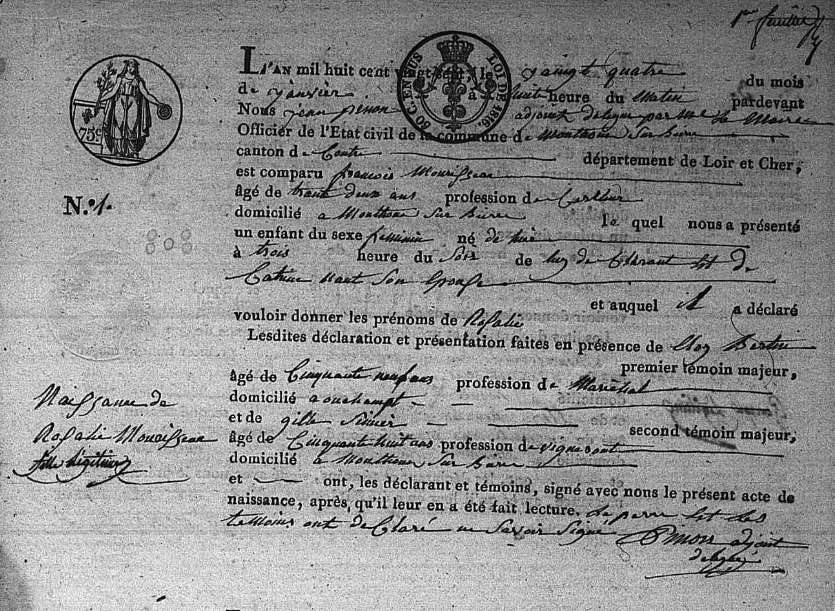 1er feuillet
L'AN mil huit cent vingt sept le vingt quatre du mois
de janvier à huit heure du matin pardevant
Nous jean pinon adjoint delegue par Mr le Maire
Officier de l'Etat civil de la commune de Monthou Sur Bievre
canton de Contre département de Loir et Cher,
est comparu francois Monrisseau
âgé de trante deux ans profession de
domicilié a Monthou Sur Bievre le quel nous a présenté
un enfant du sexe feminin né de hier
à trois heure du Soir de luy de Clarant et de
Catrine Son Epouse
et auquel il a déclaré
vouloir donner les prénoms de Rosalie
Lesdites déclaration et présentation faites en présence de Eloy Bertin
premier témoin majeur,
âgé de Cinquante neuf ans profession de Maréchal
domicilié a ouchampt
et de gille second témoin majeur,
âgé de Cinquante huit ans profession de vigneront
domicilié a Monthou Sur Bievre
et ont, les déclarant et témoins, signé avec nous le présent acte de
naissance, après, qu'il leur en a été fait lecture. Le perre et les
temoins ont de Claré ne Savoir Signé Pinon adjoint
delegue
75c
80 C. EN SUS
LOI DE 1816
N.º 1.
Naissance de
Rosalie Monrisseau
fille legitime